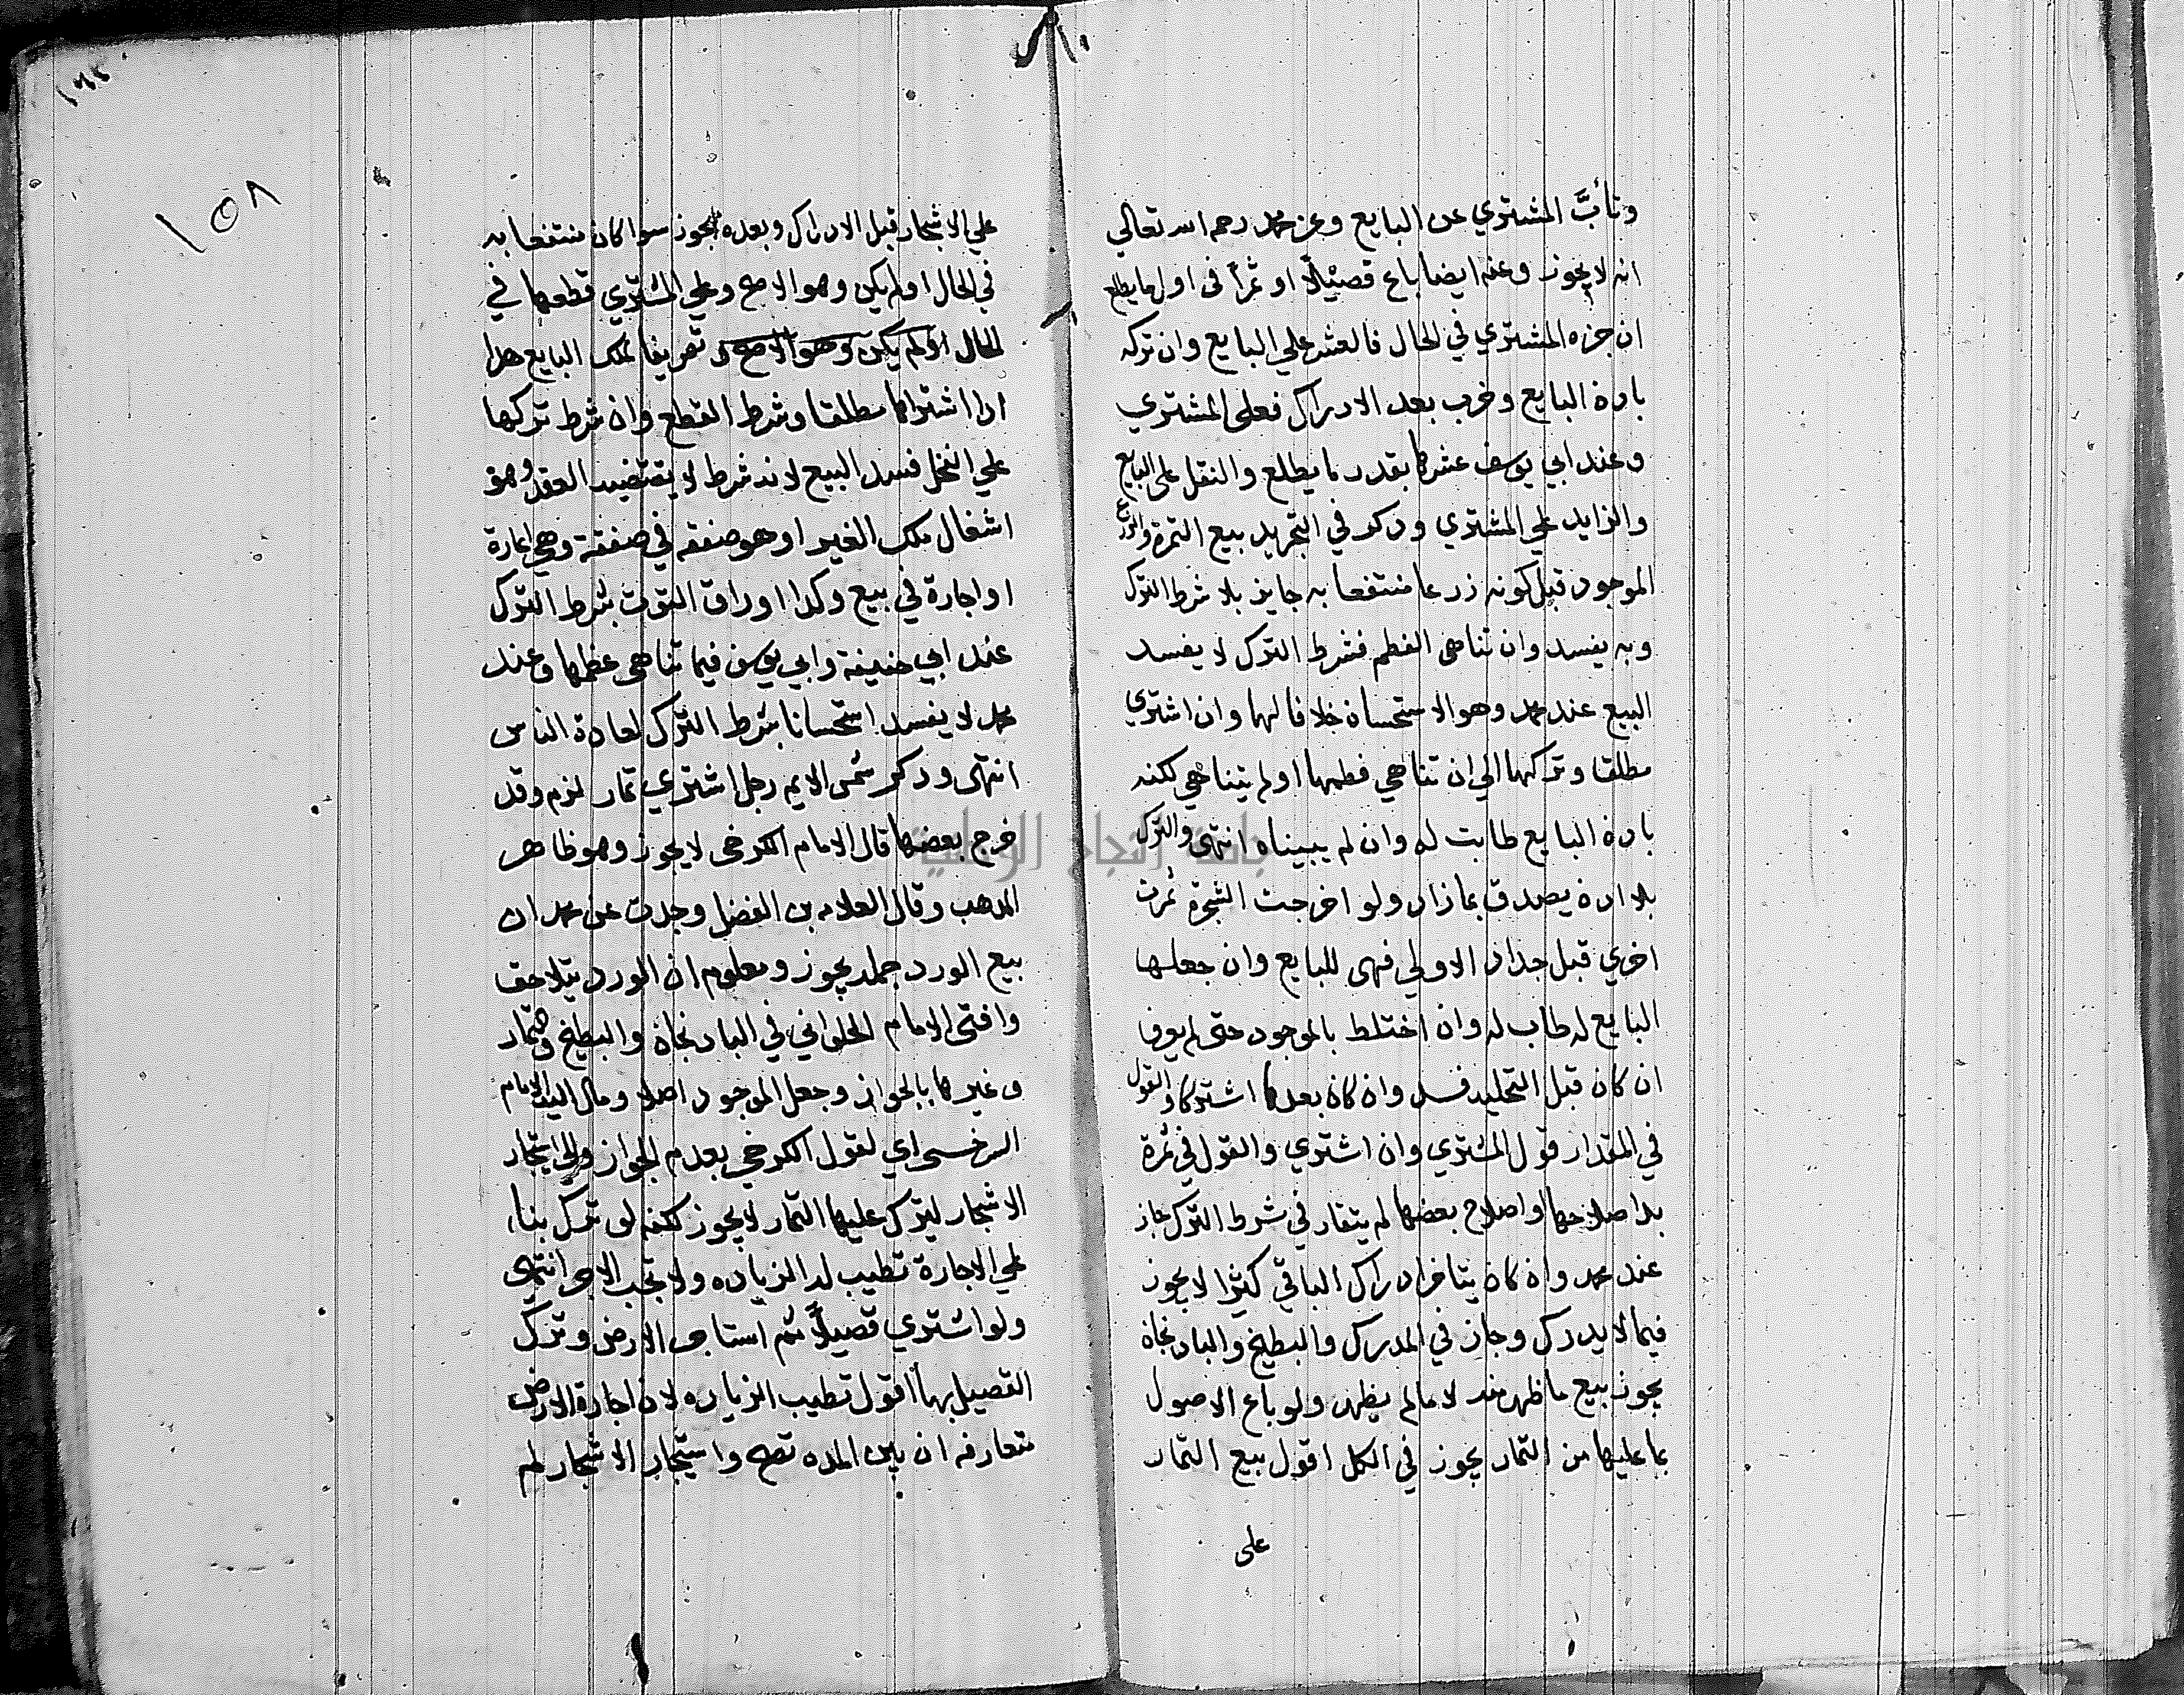 وناب المشتري عن البايع وعن محمد رحمه الله تعالي
انه لا يجوز وعنه ايضا باع قصيلا او ثمرا في اول ما يطلع
ان جزه المشتري في الحال فالعشر علي البايع وان تركه
باذن البايع وخرب بعد الادراك فعلى المشتري
وعند ابي يوسف عشرها بقدر ما يطلع والنقل على البايع
والزايد علي المشتري وذكر في التجريد بيع الثمرة والزرع
الموجود قبل كونه زرعا منتفعا به جايز بلا شرط الترك
وبه يفسد وان تناهى العظم فشرط الترك لا يفسد
البيع عند محمد وهو الاستحسان خلافا لهما وان اشتري
مطلقا وتركها الي ان تناهي فطمها او لم يتناهي لكنه
باذن البايع طابت له وان لم يبيناه انتهى والترك
بلا اذن يصدق بما زاد ولو اخرجت الشجرة ثمرت
اخري قبل جذاذ الاولي فهى للبايع وان جعلها
البايع له طاب له وان اختلط بالموجود حتى لم يعرف
ان كان قبل التخلية فسد وان كان بعدها اشتركا والقول
في المقدار قول المشتري وان اشتري والقول في ثمرة
بدا صلاحها واصلاح بعضها لم يتقار في شرط الترك جاز
عند محمد وان كان يتاخر ادراك الباقي كثيرا لا يجوز
فيما لا يدرك وجاز في المدرك والبطيخ والباذنجان
يجوز بيع ما ظهر منه لا ما لم يظهر ولو باع الاصول
بما عليها من الثمار يجوز في الكل اقول بيع الثمار
على
١٥٨
علي الاشجار قبل الادراك وبعده يجوز سوا كان منتفعا به
في الحال او لم يكن وهو الاصح وعلي المشتري قطعها في
الحال او لم يكن وهو الاصح تفريغا لملك البايع هذا
اذا اشتراها مطلقا وشرط القطع وان شرط تركها
علي النخل فسد البيع لانه شرط لا يقتضيه العقد وهو
اشغال ملك الغير او هو صفقه في صفقة وهي اعارة
او اجارة في بيع وكذا اوراق التوت بشرط الترك
عند ابي حنيفة وابي يوسف فيما تناهى عظمها وعند
محمد لا يفسد استحسانا بشرط الترك لعادة الناس
انتهى وذكر شمس الايمه رجل اشتري ثمار كرم وقد
خرج بعضها قال الامام الكرخى لا يجوز وهو ظاهر
المذهب وقال العلامه بن الفضل وجدت عن محمد ان
بيع الورد جمله يجوز ومعلوم ان الورد يتلاحق
وافتى الامام الحلواني في الباذنجان والبطيخ والثمار
وغيرها بالجواز وجعل الموجود اصلا ومال اليه الامام
السرخسى اي لقول الكرخي بعدم الجواز والى ايجار
الاشجار ليترك عليها الثمار لا يجوز لكنه لو ترك بنا
علي الاجارة تطيب له الزياده ولا تجب الاجر انتهى
ولو اشتري قصيلا ثم استاجر الارض وترك
القصيل بها اقول تطيب الزياده لان اجارة الارض
متعارفه ان بين المده تصح واستيجار الاشجار لم
جامعة النجاح الوطنية